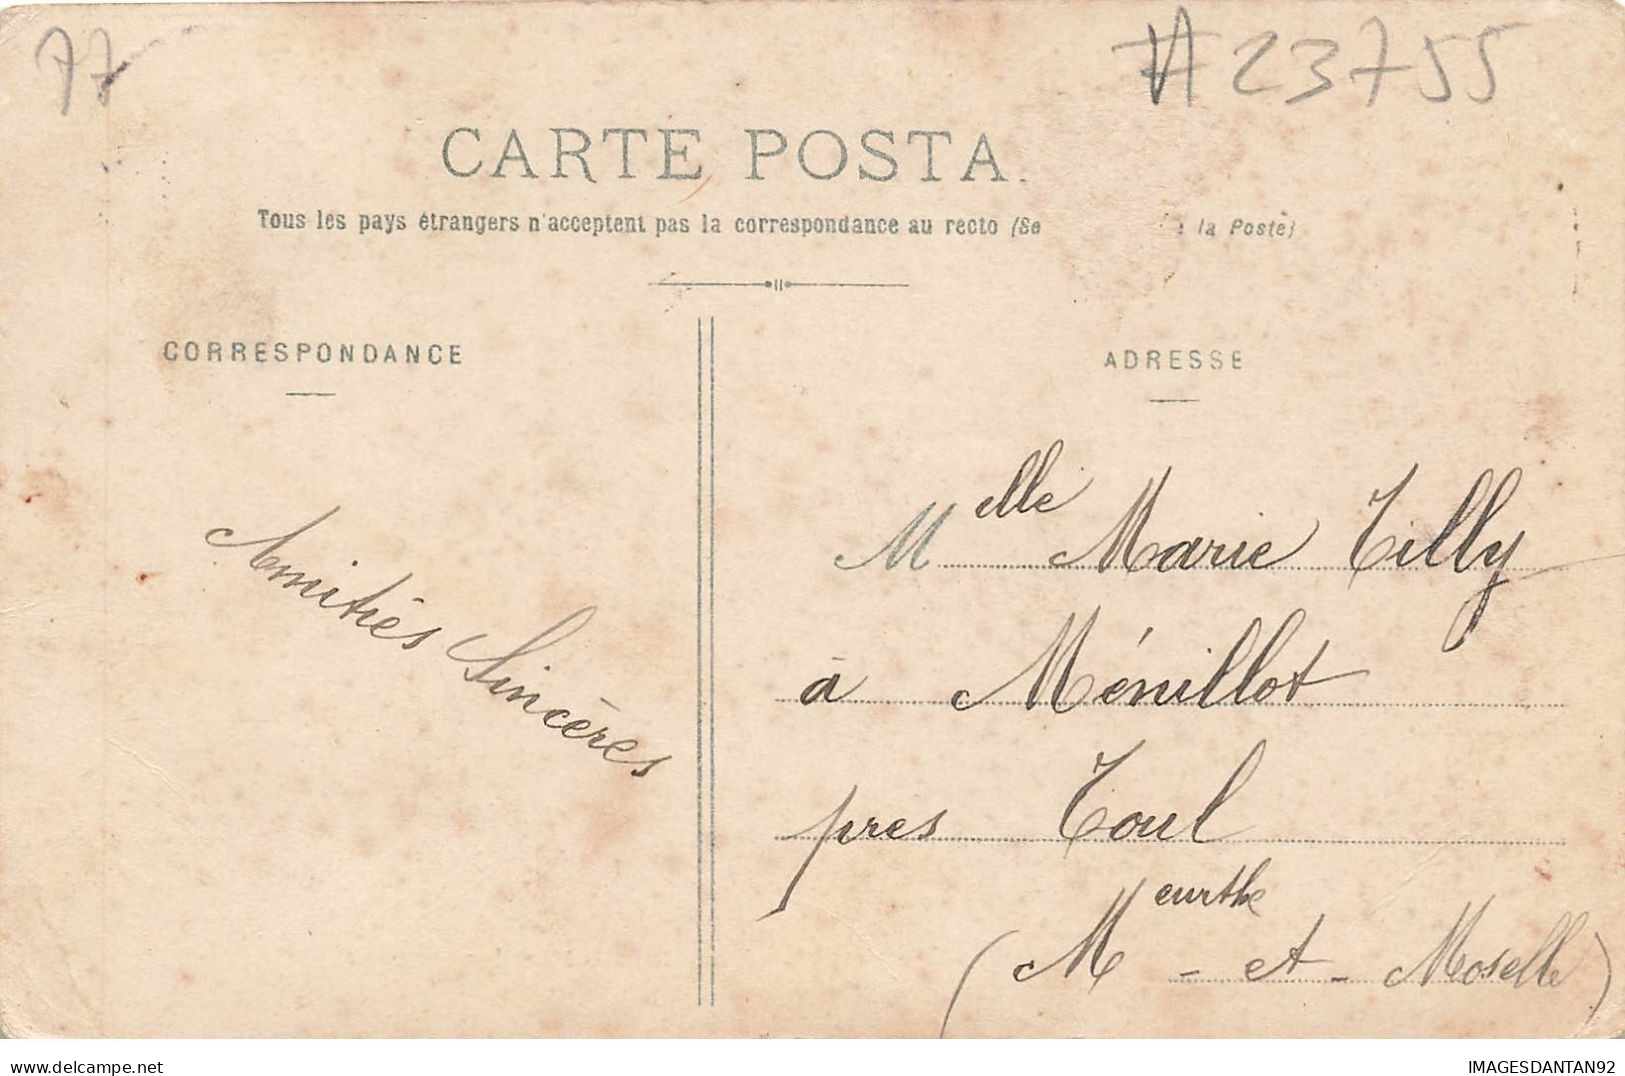 77
#23755
CARTE POSTA
Tous les pays étrangers n'acceptent pas la correspondance au recto (Se la Poste)
CORRESPONDANCE
ADRESSE
Amitiés Sincères
Melle Marie Tilly
à Ménillot
près Toul
(Meurthe - et - Moselle)
IMAGESDANTAN92